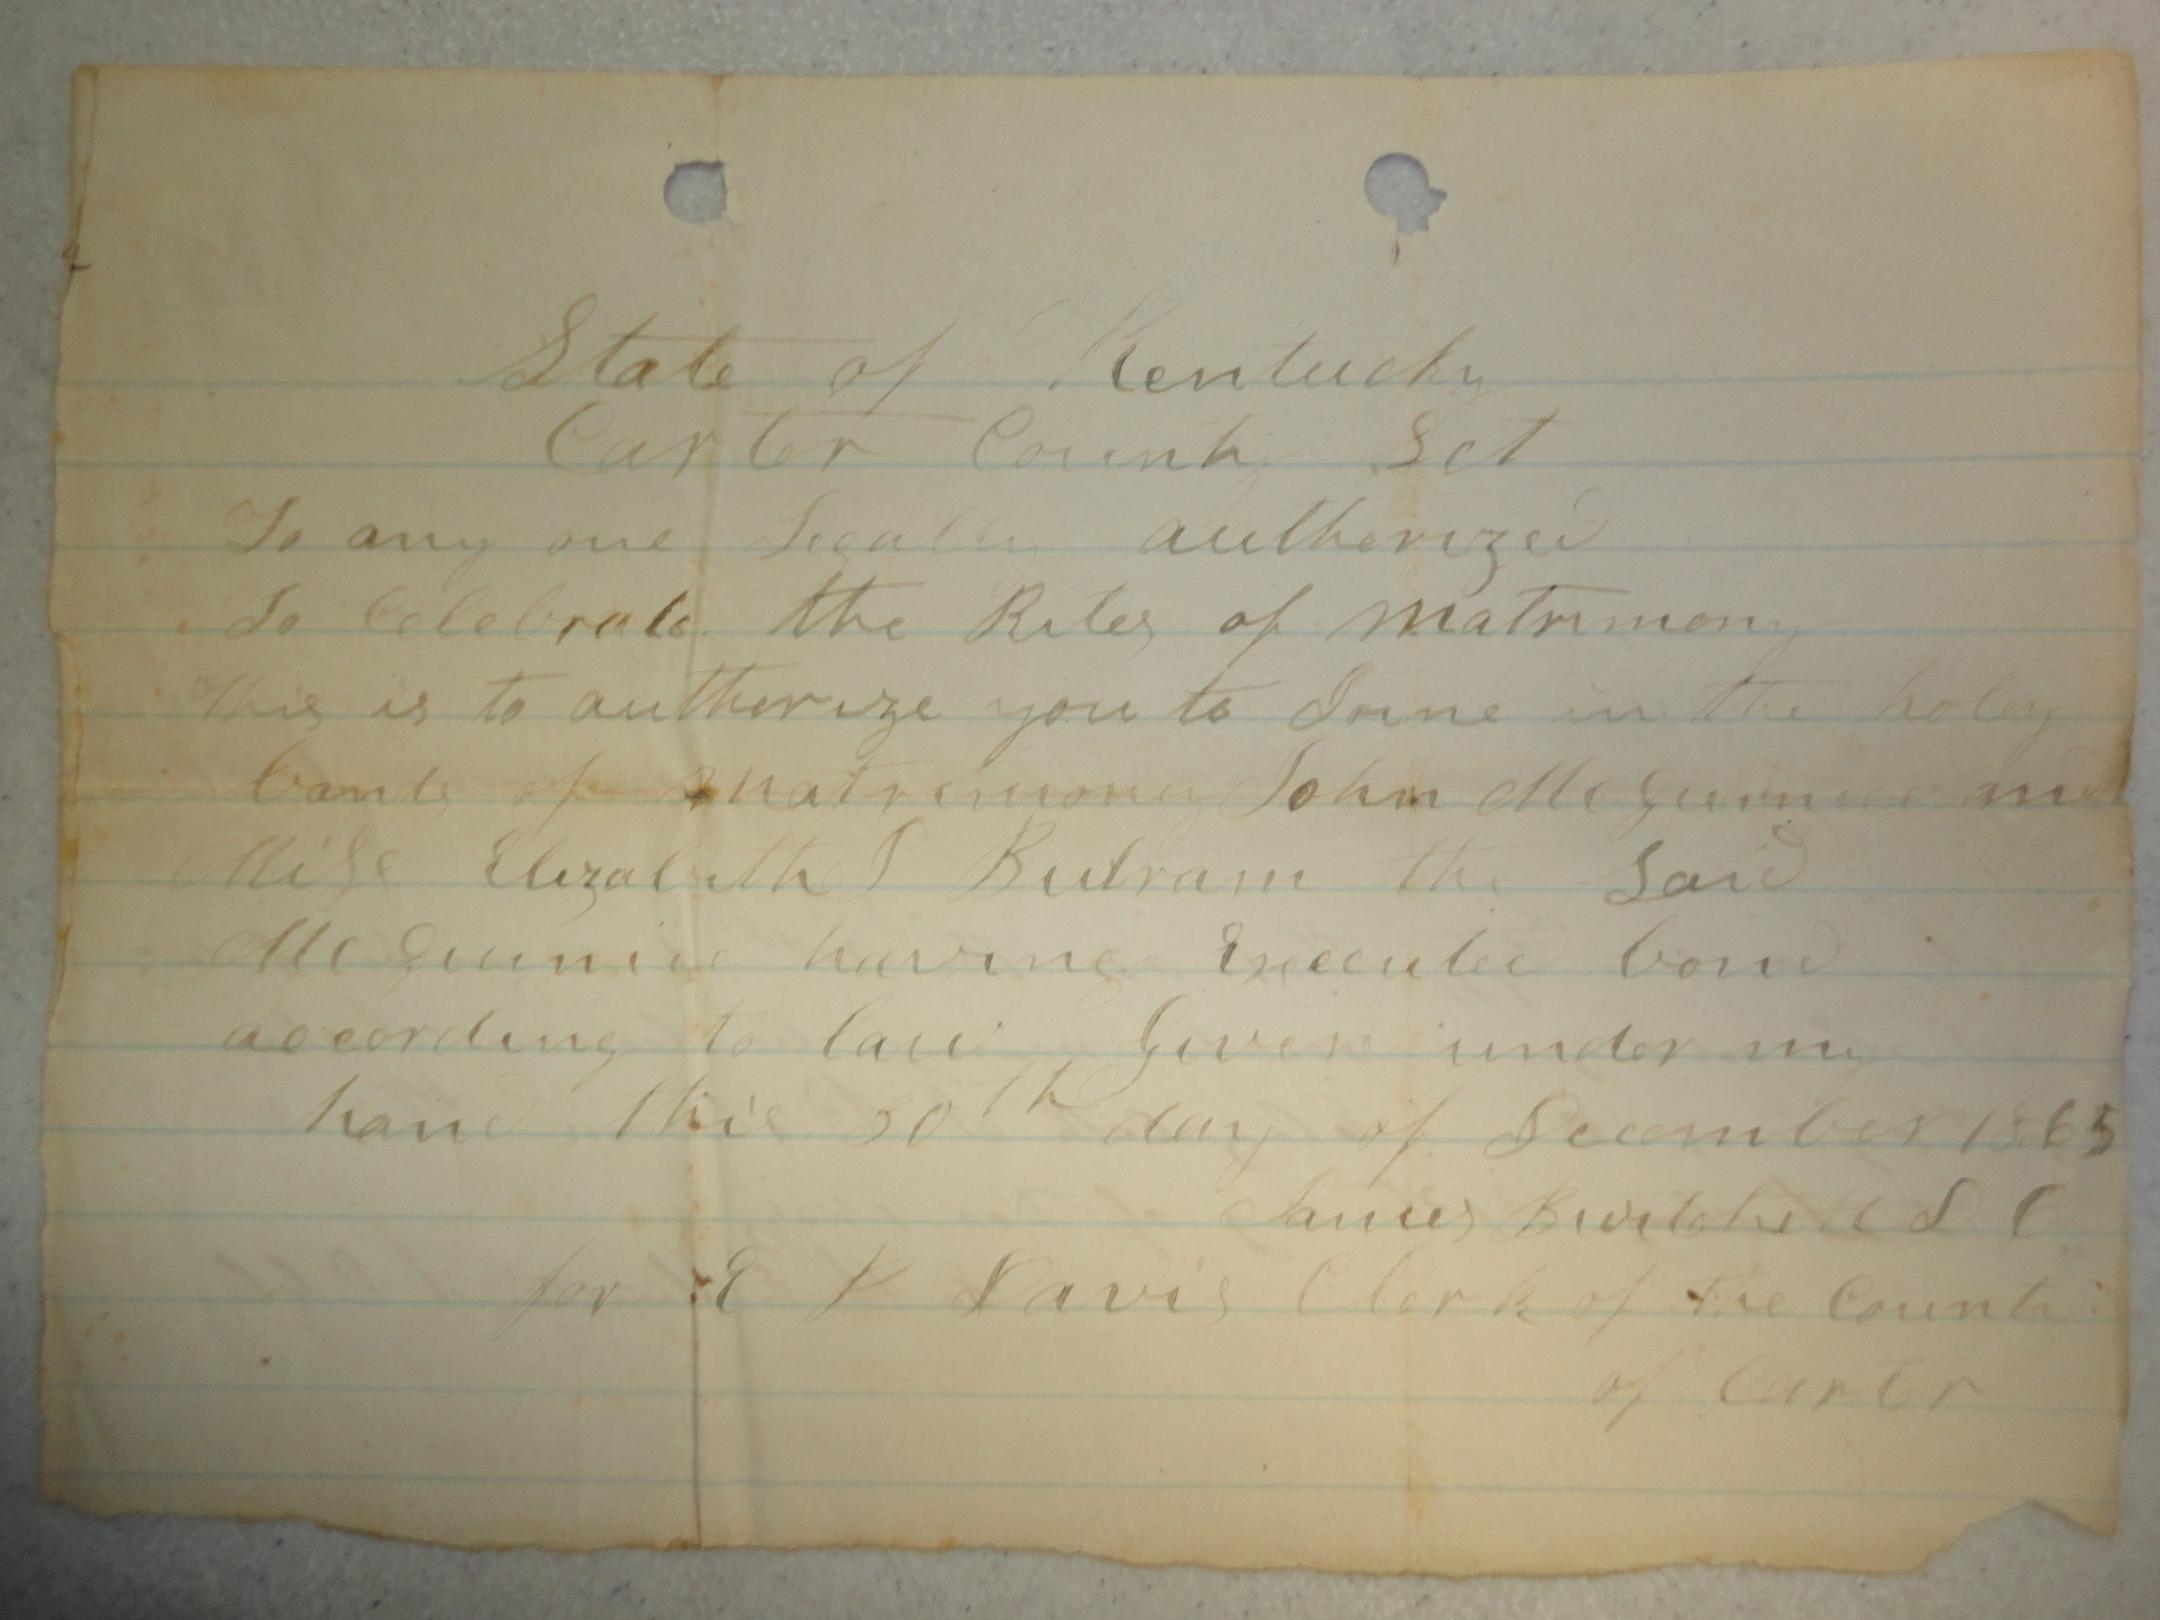 State of Kentucky
Carter County Sct
To any one Legally authorized
To Celebrate the Rites of Matrimony
This is to authorize you to Joine in the holey
bands of Matrimony John McGuinnice and
Miss Elizabeth J Butram the Said
McGuinnice having Executed bond
according to law, Given under my
hand this 30th day of December 1865
James D C
for E Davis Clerk of the County
of Carter